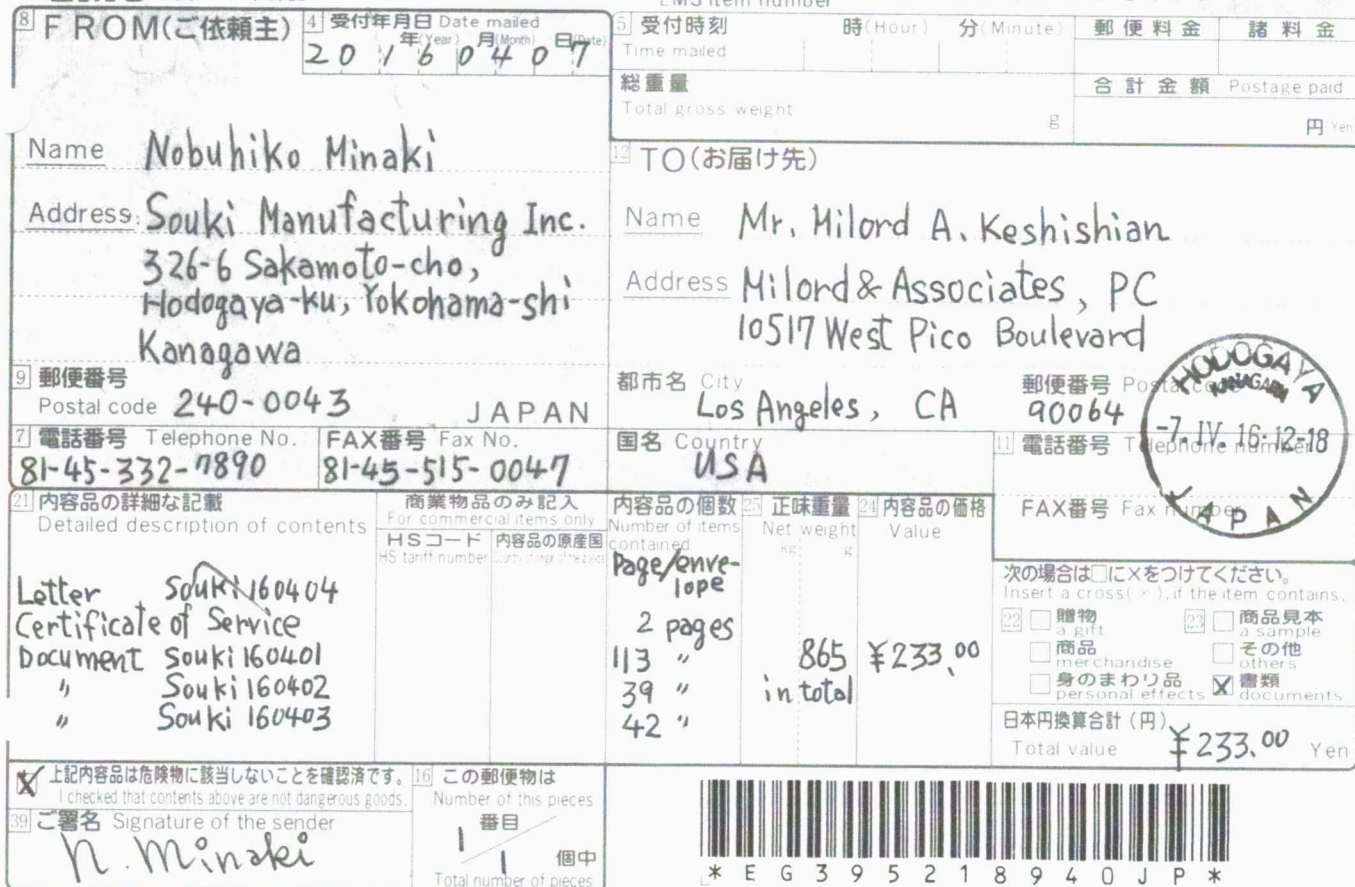 EMS item number
8 FROM(ご依頼主)
4 受付年月日 Date mailed
年(Year) 月(Month) 日(Date)
2016 04 07
5 受付時刻 時(Hour) 分(Minute)
Time mailed
郵便料金 諸料金
総重量
Total gross weight g
合計金額 Postage paid
円 Yen
Name Nobuhiko Minaki
Address: Souki Manufacturing Inc.
326-6 Sakamoto-cho,
Hodogaya-ku, Yokohama-shi
Kanagawa
9 郵便番号
Postal code 240-0043 JAPAN
7 電話番号 Telephone No.
81-45-332-7890
FAX番号 Fax No.
81-45-515-0047
12 TO(お届け先)
Name Mr. Milord A. Keshishian
Address Milord & Associates, PC
10517 West Pico Boulevard
都市名 City
Los Angeles, CA
郵便番号 Postal code
90064
国名 Country
USA
11 電話番号 Telephone number
FAX番号 Fax number
HODOGAYA
KANAGAWA
-7. IV. 16. 12-18
JAPAN
21 内容品の詳細な記載
Detailed description of contents
商業物品のみ記入
For commercial items only
HSコード
HS tariff number
内容品の原産国
内容品の個数
Number of items contained
25 正味重量
Net weight
kg g
24 内容品の価格
Value
Page/enve-
lope
Letter Souki 160404
Certificate of Service 2 pages
Document Souki 160401 113 " 865 ¥233.00
" Souki 160402 39 " in total
" Souki 160403 42 "
次の場合は□に×をつけてください。
Insert a cross(×), if the item contains.
22 贈物
a gift
商品
merchandise
身のまわり品
personal effects
23 商品見本
a sample
その他
others
X 書類
documents
日本円換算合計(円)
Total value ¥233.00 Yen
X 上記内容品は危険物に該当しないことを確認済です。
I checked that contents above are not dangerous goods.
39 ご署名 Signature of the sender
N. Minaki
16 この郵便物は
Number of this pieces
1 番目
1 個中
Total number of pieces
* E G 3 9 5 2 1 8 9 4 0 J P *